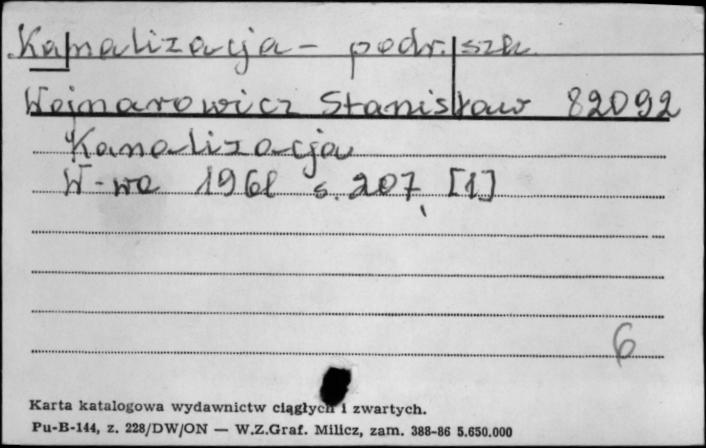 Kanalizacja – podr. szk.
Wojnarowicz Stanisław 82092
Kanalizacja
W-wa 1961 s. 207, [1]
6
Karta katalogowa wydawnictw ciągłych i zwartych.
Pu-B-144, z. 228/DW/ON — W.Z.Graf. Milicz, zam. 388-86 5.650.000